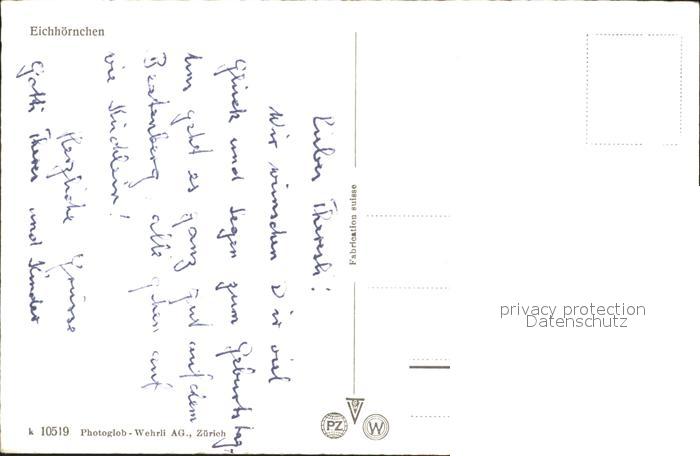 Eichhörnchen
Lieber Theresli!
Wir wünschen Dir viel
Glück und Segen zum Geburtstag.
Uns geht es ganz gut auf dem
Beatenberg, alle gehen auf
wie Küchlein!
Herzliche Grüsse
Gotti Theres und Kinder
Fabrication suisse
privacy protection
Datenschutz
PZ
W
k 10519 Photoglob-Wehrli AG., Zürich